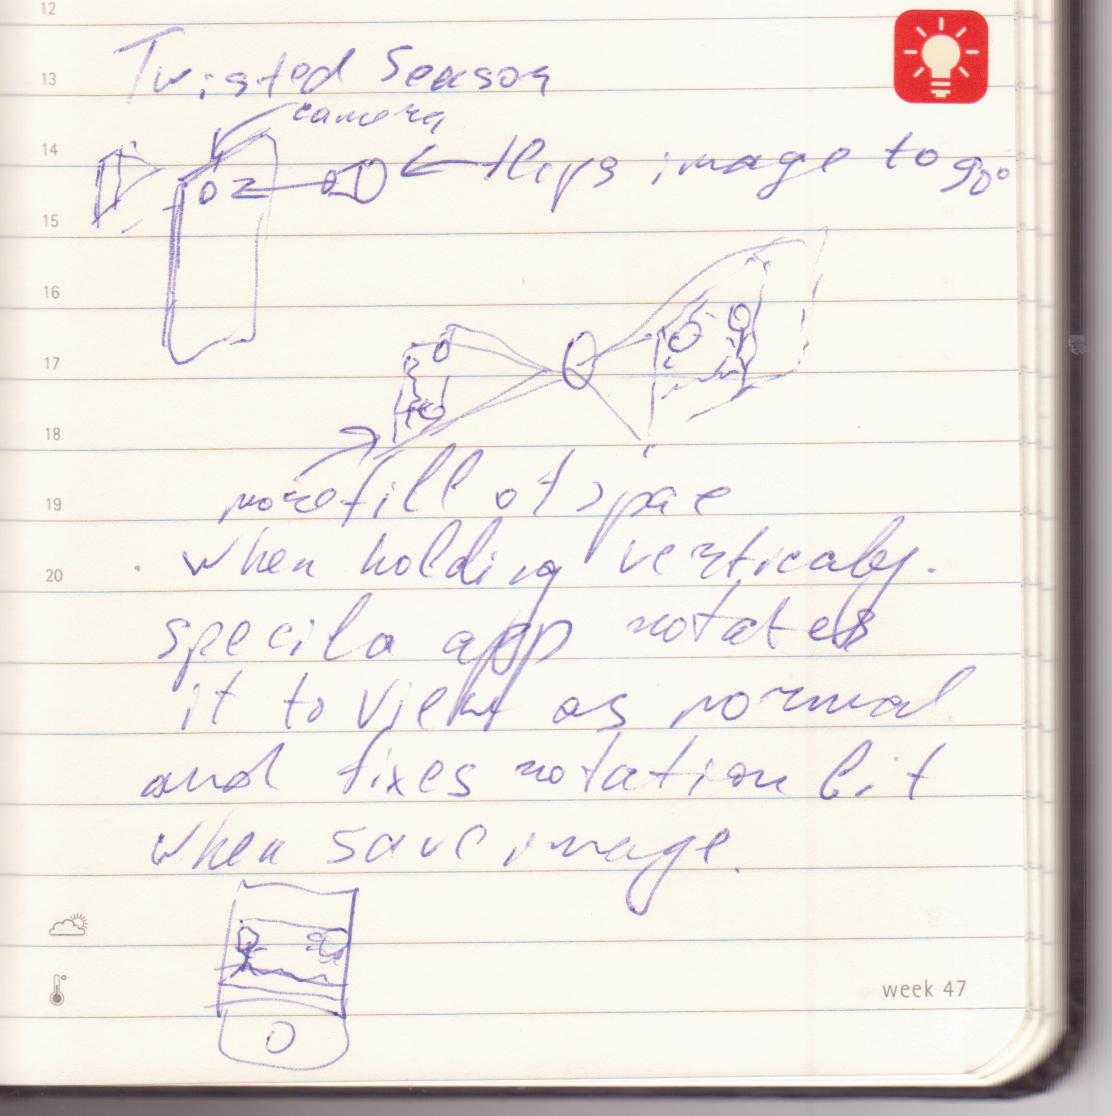 12
13
14
15
16
17
18
19
20
Twisted Sensor
camera
flips image to 90°
more fill of space
when holding verticaly.
specila app rotates
it to view as normal
and fixes rotation bit
when save image.
week 47